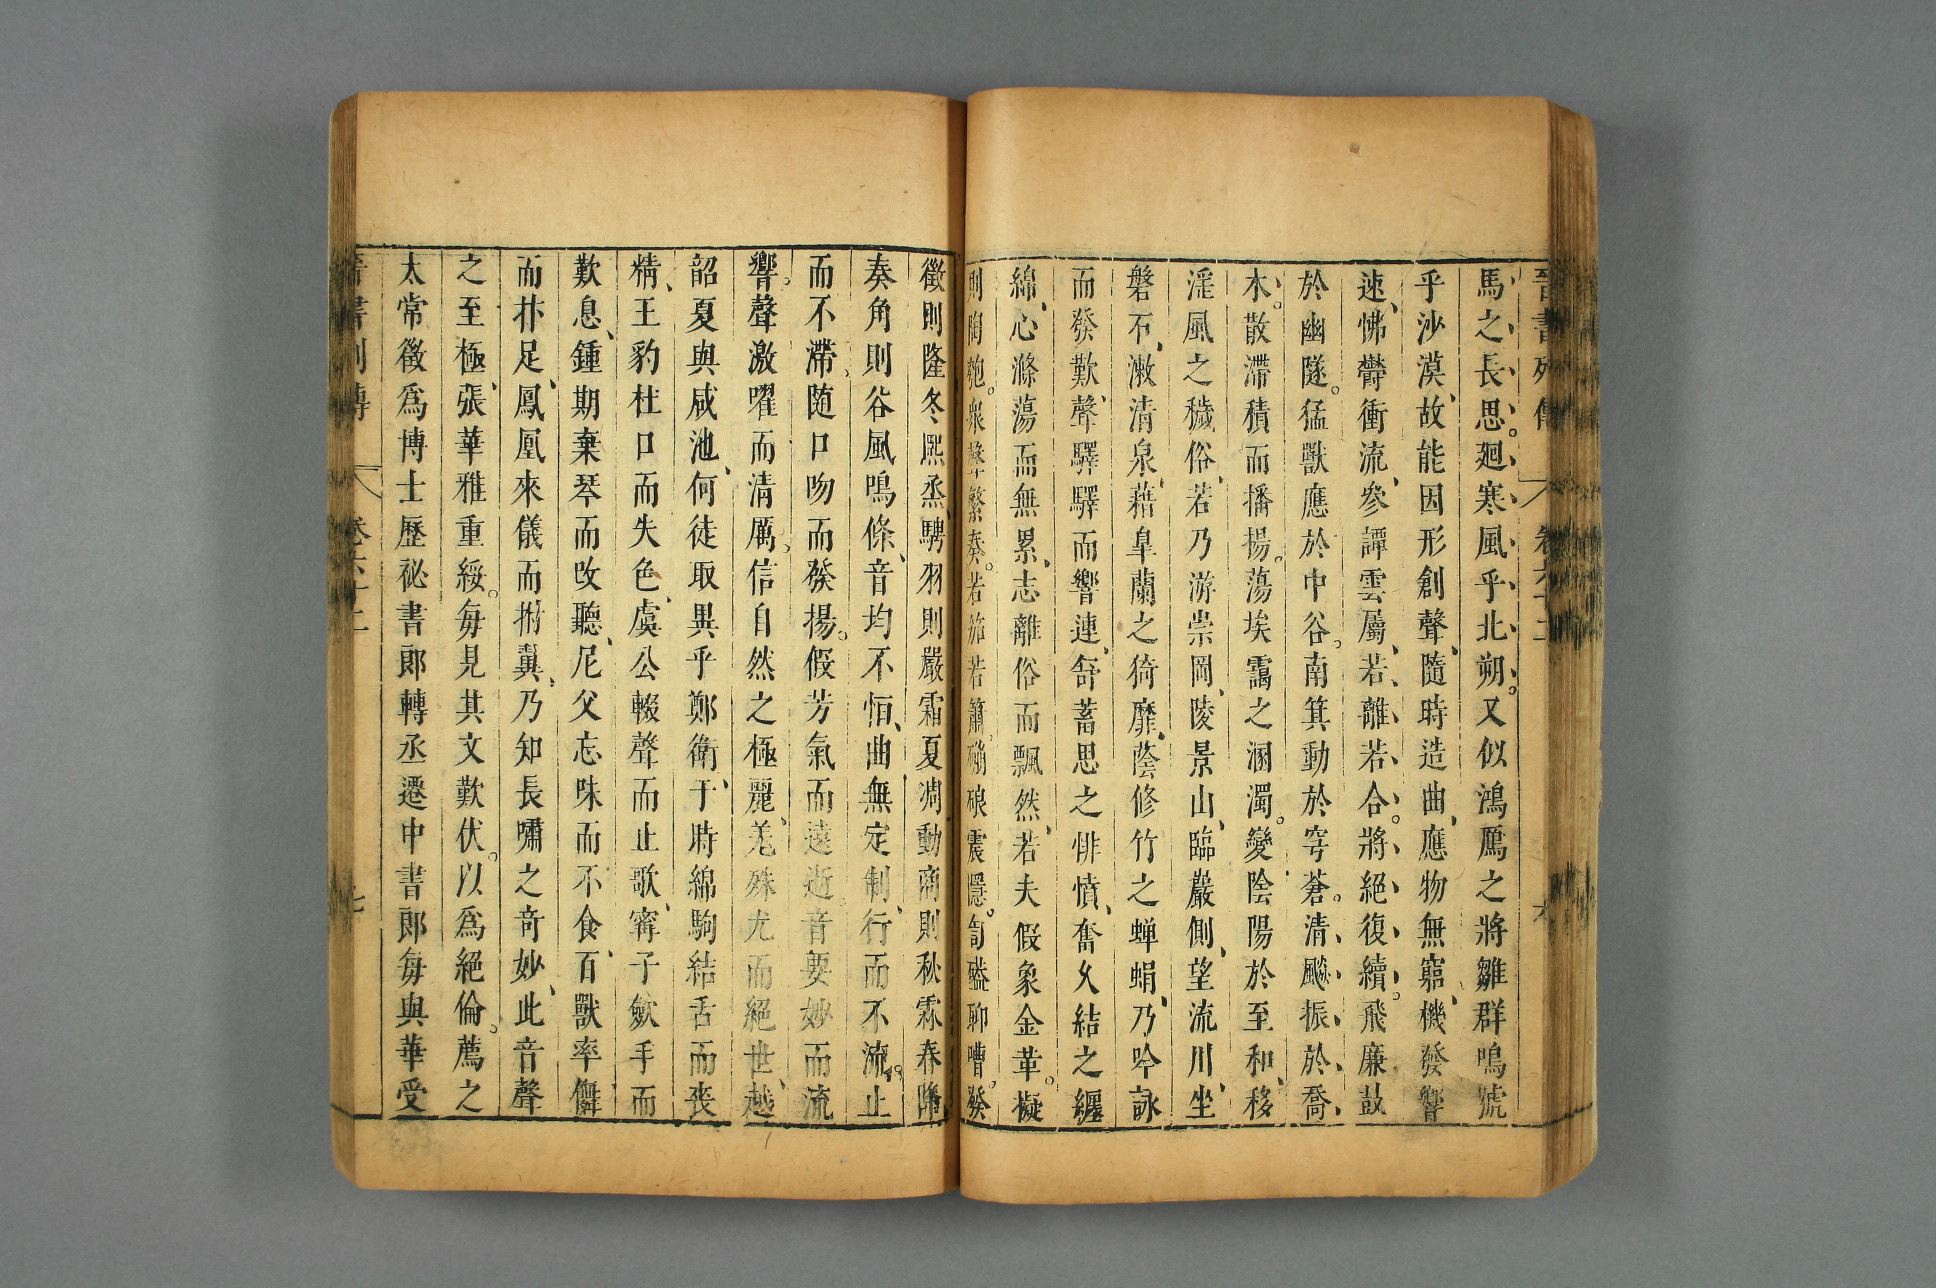 晉書列傳 卷六十二 六
馬之長思。廻寒風乎北朔。又似鴻鴈之將雛群鳴號
乎沙漠、故能因形創聲、隨時造曲、應物無窮、機發響
速、怫欝衝流、參譚雲屬、若離若合。將絕復續。飛廉鼓
於幽隧。猛獸應於中谷。南箕動於穹蒼。清飈振於喬
木。散滯積而播揚。蕩埃靄之溷濁。變陰陽於至和、移
淫風之穢俗、若乃游崇岡、陵景山、臨巖側、望流川、坐
磐石、漱清泉、藉臯蘭之猗靡、蔭修竹之蝉蜎、乃吟詠
而發歎、聲驛驛而響連、舒蓄思之悱憤、奮久結之纏
綿、心滌蕩而無累、志離俗而飄然、若夫假象金革。擬
則陶匏。衆聲繁奏。若笳若簫。硼硠震隱。訇磕聊嘈。發
徵則隆冬熙烝、騁羽則嚴霜夏凋、動商則秋霖春降、
奏角則谷風鳴條、音均不恒、曲無定制、行而不流。止
而不滯。随口吻而發揚。假芳氣而遠逝。音要妙而流
響。聲激曜而清厲。信自然之極麗、羌殊尤而絕世、越
韶夏與咸池、何徒取異乎鄭衛、于時綿駒結舌而喪
精、王豹杜口而失色、虞公輟聲而止歌、甯子斂手而
歎息、鍾期棄琴而改聽、尼父忘味而不食、百獸率儛
而抃足、鳳凰來儀而拊翼、乃知長嘯之奇妙、此音聲
之至極、張華雅重綏。每見其文歎伏。以爲絕倫。薦之
太常徵爲博士歷祕書郎轉丞遷中書郎每與華受
晉書列傳 卷六十二 七